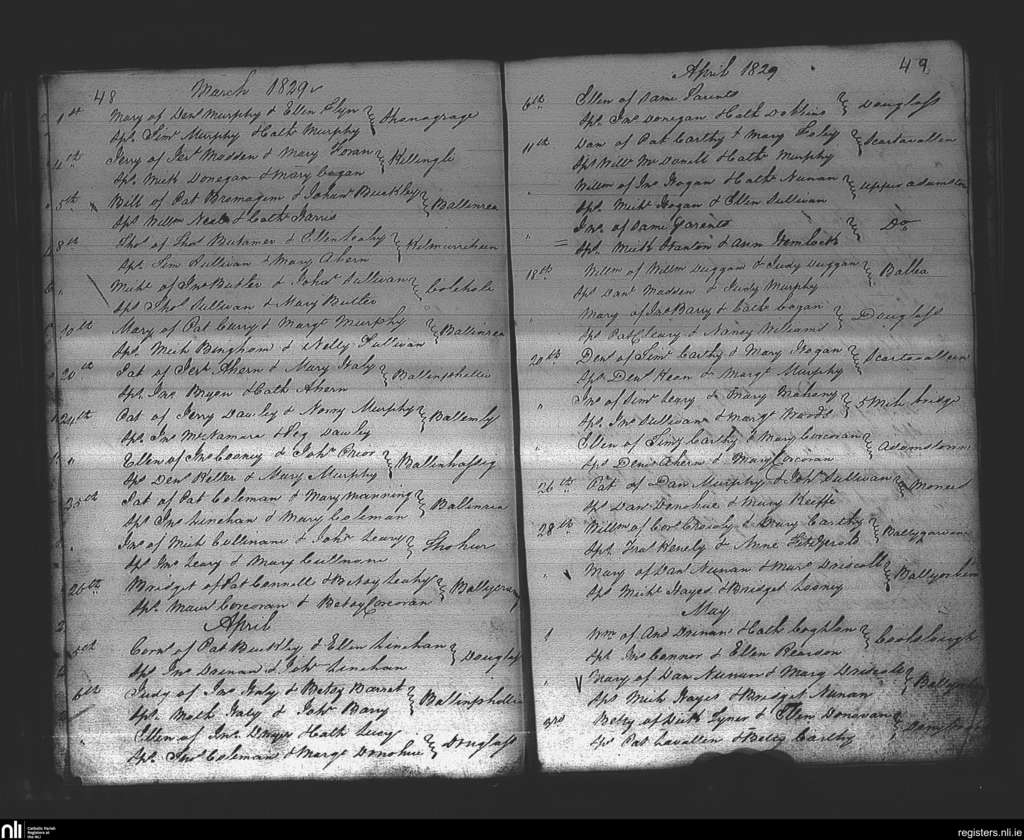 48 March 1829
1st Mary of Denl Murphy & Ellen Flyn
Sps. Simn Murphy Cath Murphy
4th Jerry of Jerh Madden & Mary Horan Killingle
Sps. Mich Donegan & Mary Cogan
5th Bill of Pat Bromagim & Johan Buckley Ballinrea
Sps Willm Neal & Cath Harris
8th Thos of Thos Butamer & Ellen Leahy
Sps. Sim Sullivan & Mary Ahern
" Michl of Jno Butler & Johr Sullivan
Sps Thos Sullivan & Mary Butler
10th Mary of Pat Curry & Margt Murphy Ballinrea
Sps. Mich Bingham & Nelly Sullivan
20th Pat of Jerh Ahern & Mary Haly Ballinphellic
Sps. Jas Bryen & Cath Ahern
24th Pat of Jerry Dawley & Nonny Murphy
Sps. Jno McNamara & Peg Dawley
" Ellen of Jno Cooney & Johr Prior Ballinhassig
Sps Denl Keller & Mary Murphy
25th Pat of Pat Coleman & Mary Manning Ballinrea
Sps Jno Linehan & Mary Coleman
" Jno of Mich Cullinane & Johr Leary
Sps. Jno Leary & Mary Cullinane
26th Bridget of Pat Connell & Betsy Leahy
Sps. Maurc Corcoran & Betsy Corcoran
April
5th Corns of Pat Buckley & Ellen Linehan Douglass
Sps Jno Doinan & Johr Linehan
6th Judy of Jas Haly & Betsy Barret Ballinphellic
Sps. Math Haly & Johr Barry
" Ellen of Jno Dwyer & Cath Lucy Douglass
Sps. Thos Coleman & Margt Donohue
April 1829 49
6th Ellen of Same Parents Douglass
Sps. Jno Donegan & Cath Dobbins
11th Dan of Pat Carthy & Mary Foley Scartavallen
Sps Willm McDonell Cath Murphy
" Willm of Jno Hogan & Cath Nunan Upper Adamston
Sps. Michl Hogan & Ellen Sullivan
" Jno. of Same Parents Do
Sps. Mich Stanton & Ann Hemlock
18th Willm of Willm Duggan & Judy Duggan Ballea
Sps. Danl Madden & Judy Murphy
" Mary of Jas Barry & Cath Cogan Douglass
Sps Pat Cleary & Nancy Williams
20th Denl of Simn Carthy & Mary Hogan Scartavalleen
Sps. Denl Kean & Margt Murphy
" Jno of Simn Leary & Mary Mahony 5 Mile bridge
Sps. Jno Sullivan & Margt Woods
" Ellen of Timy Carthy & Mary Corcoran Adamstown
Sps Denl Ahern & Mary Corcoran
26th Pat of Dan Murphy & Johr Sullivan Monees
Sps Dan Donohue & Mary Keiffe
28th Willm of Cors Crowly & Mary Carthy Ballygarvan
Sps. Fras Kenely & Anne FitzGerald
" Mary of Danl Nunan & Mary Driscoll
Sps Michl Hayes & Bridget Looney
May
1 Wm of And Doinan & Cath Coghlan
Sps Jno Connor & Ellen Rearson
" Mary of Dan Nunan & Mary Driscoll
Sps Mich Hayes & Bridget Nunan
3rd Betsy of Dick Lyner & Ellen Donavan
Sps Pat Lavallen & Betsy Carthy
nli Catholic Parish Registers at the NLI
registers.nli.ie